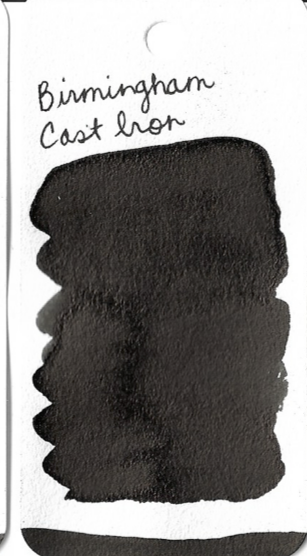 Birmingham
Cast Iron